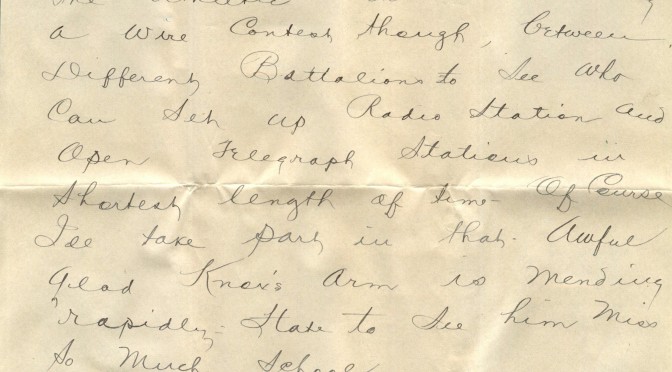 The Athletic
a Wire Contest though, between
Different Battalions to See Who
Can Set up Radio Station and
Open Telegraph Stations in
Shortest length of time- Of Course
I'll take part in that- Awful
glad Knox's Arm is mending
rapidly- Hate to See him Miss
So Much School